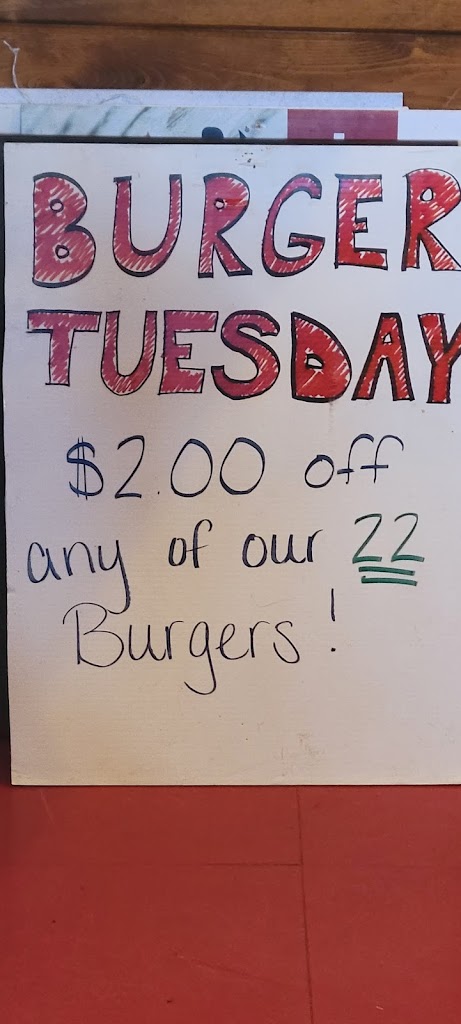 BURGER
TUESDAY
$2.00 off
any of our 22
Burgers!